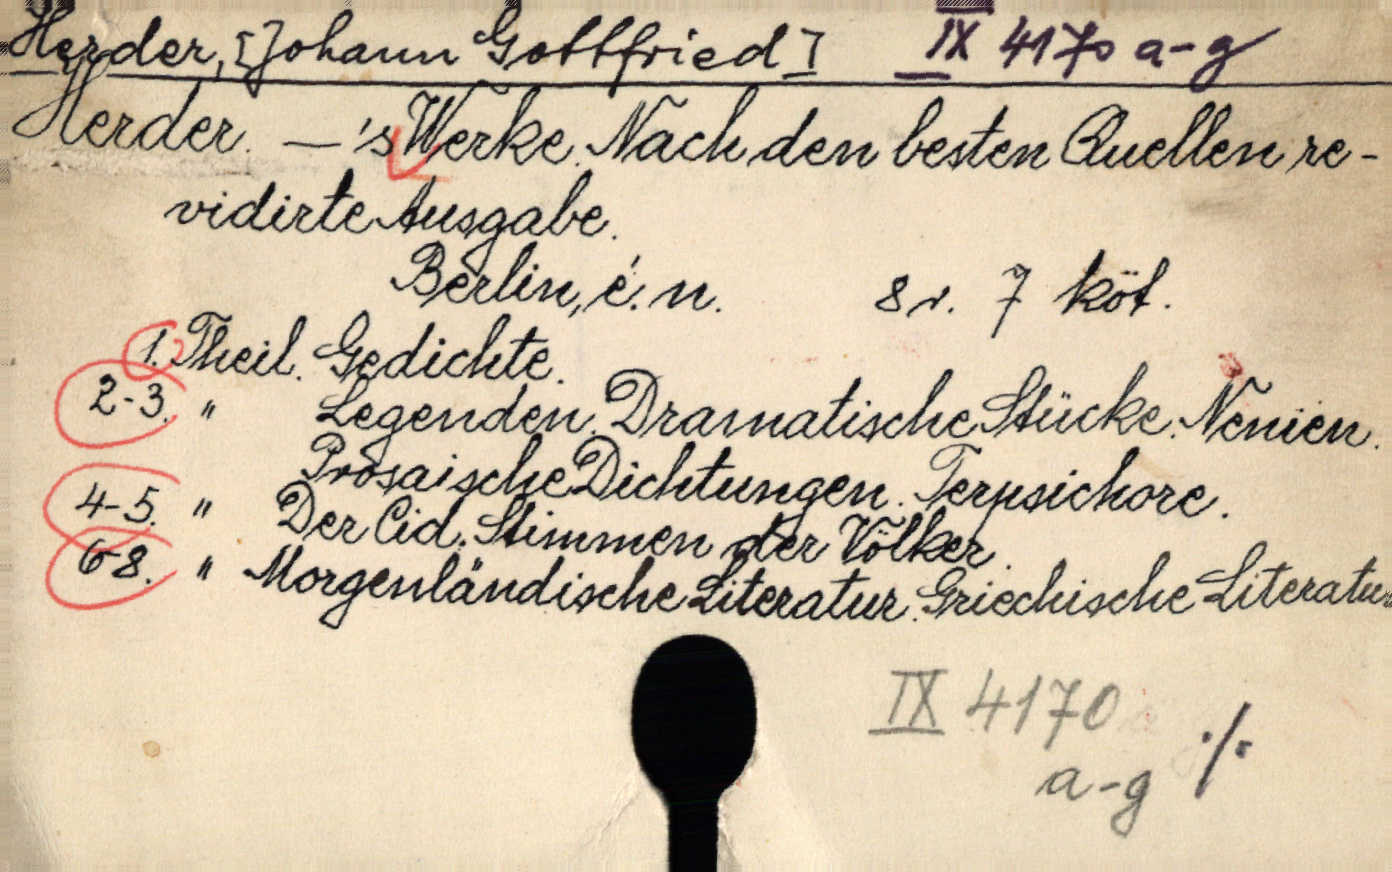 Herder, [Johann Gottfried] IX 4170 a-g
Herder. — 's Werke. Nach den besten Quellen re-
vidirte Ausgabe.
Berlin, é. n. 8 r. 7 köt.
1. Theil. Gedichte.
2-3. " Legenden. Dramatische Stücke. Nenien.
Prosaische Dichtungen. Terpsichore.
4-5. " Der Cid. Stimmen der Völker.
6-8. " Morgenländische Literatur. Griechische Literatur
IX 4170
a-g ./.